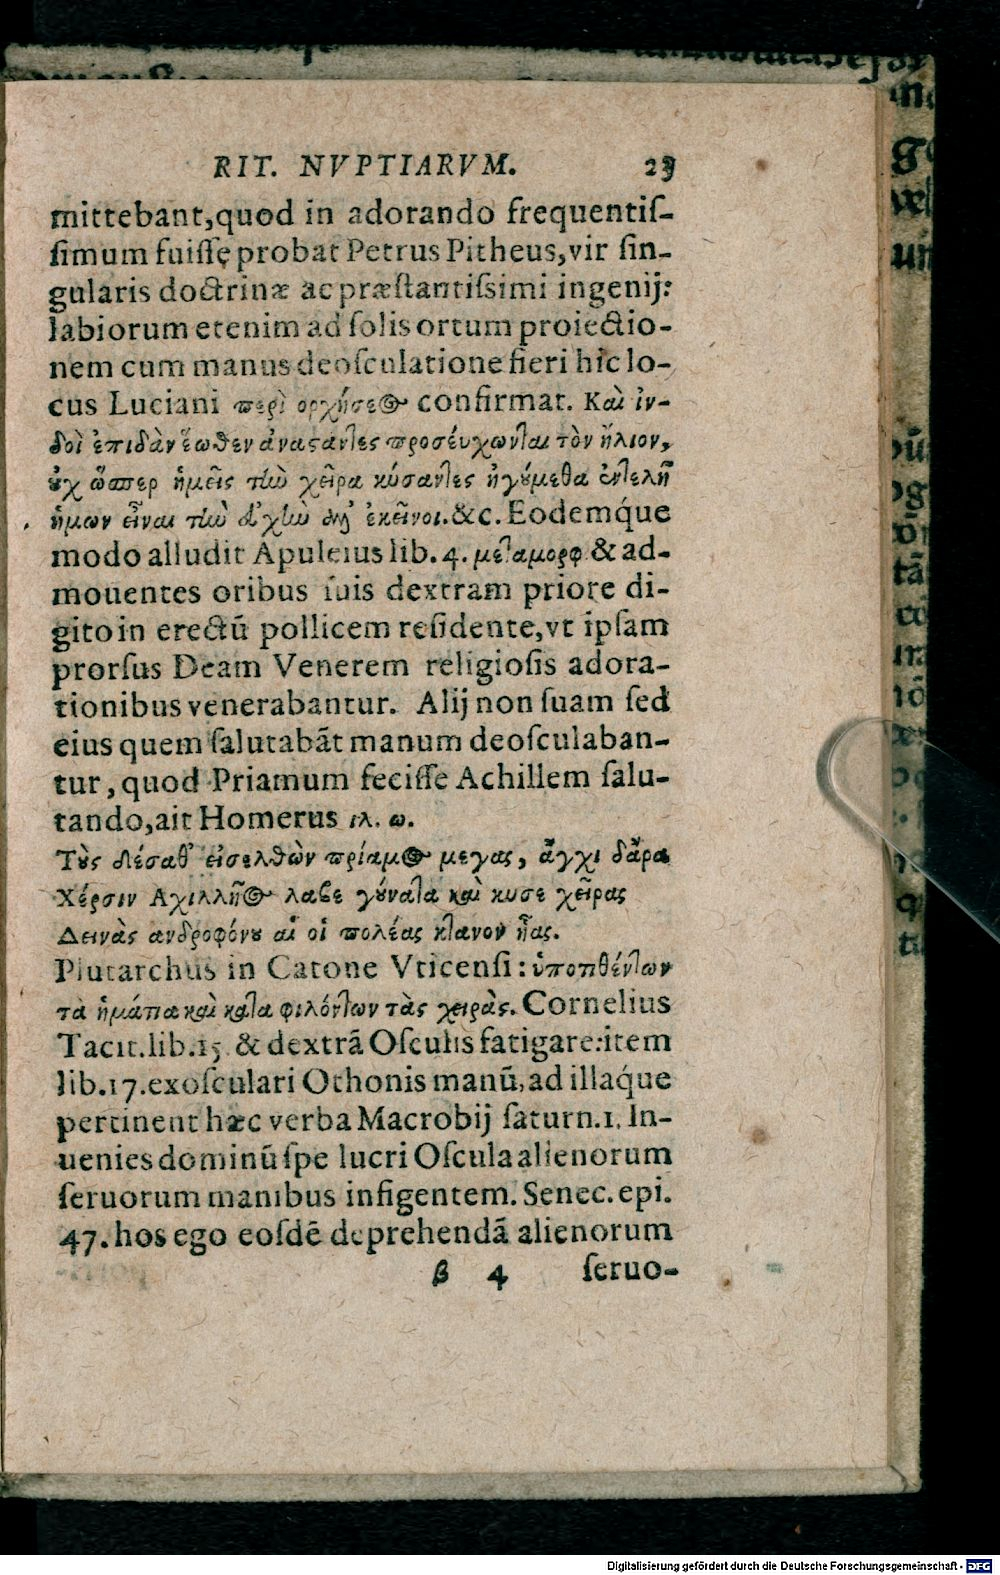 RIT. NVPTIARVM. 23
mittebant,quod in adorando frequentiſ-
ſimum fuiſſę probat Petrus Pitheus,vir ſin-
gularis doctrinæ ac præſtantiſsimi ingenij:
labiorum etenim ad ſolis ortum proiectio-
nem cum manus deoſculatione fieri hic lo-
cus Luciani περὶ ορχήσεως confirmat. Καὶ ἰν-
δοὶ ἐπιδὰν ἕωθεν ἀναςάντες προσέυχωνται τὸν ἥλιον,
ὐχ ὥσπερ ἡμεῖς τὼ χεῖρα κύσαντες ἡγύμεθα ἐντελῆ
ἡμων εἶναι τὼ ἐκεῖνοι.&c. Eodemq́ue
modo alludit Apuleius lib. 4. μεταμορφ. & ad-
mouentes oribus ſuis dextram priore di-
gito in erectū pollicem reſidente,vt ipſam
prorſus Deam Venerem religioſis adora-
tionibus venerabantur. Alij non ſuam ſed
eius quem ſalutabāt manum deoſculaban-
tur, quod Priamum feciſſe Achillem ſalu-
tando,ait Homerus ιλ. ω.
Τοὺς εἰσελθὼν πρίαμος μεγας, ἄγχι δἄρα
Χέρσιν Αχιλλῆος λαβε γούνατα καὶ κυσε χεῖρας
Δεινὰς ανδροφόνου αἱ οἱ πολέας κτανον ἧας.
Plutarchus in Catone Vticenſi: ὑποτιθέντων
τὰ ἡμάτια καὶ κατα φιλόντων τὰς χειρὰς. Cornelius
Tacit.lib.15 & dextrā Oſculis fatigare:item
lib.17.exoſculari Othonis manū, ad illaq́ue
pertinent hæc verba Macrobij ſaturn.1. In-
uenies dominū ſpe lucri Oſcula alienorum
ſeruorum manibus infigentem. Senec. epi.
47. hos ego eoſdē deprehendā alienorum
β 4 ſeruo-
Digitalisierung gefördert durch die Deutsche Forschungsgemeinschaft - DFG